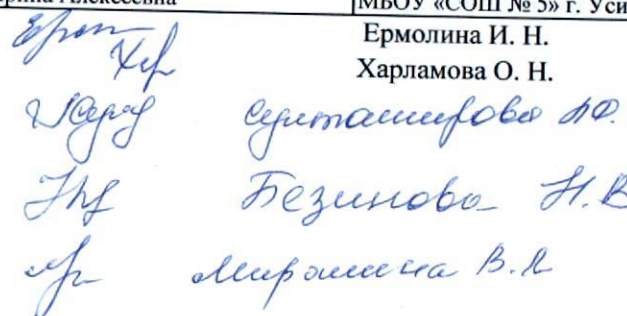 Алексеевна МБОУ «СОШ № 5» г. Уси
Ермолина И. Н.
Харламова О. Н.
Султанширова А.Ф.
Безинова Н.В
Миронина В.А